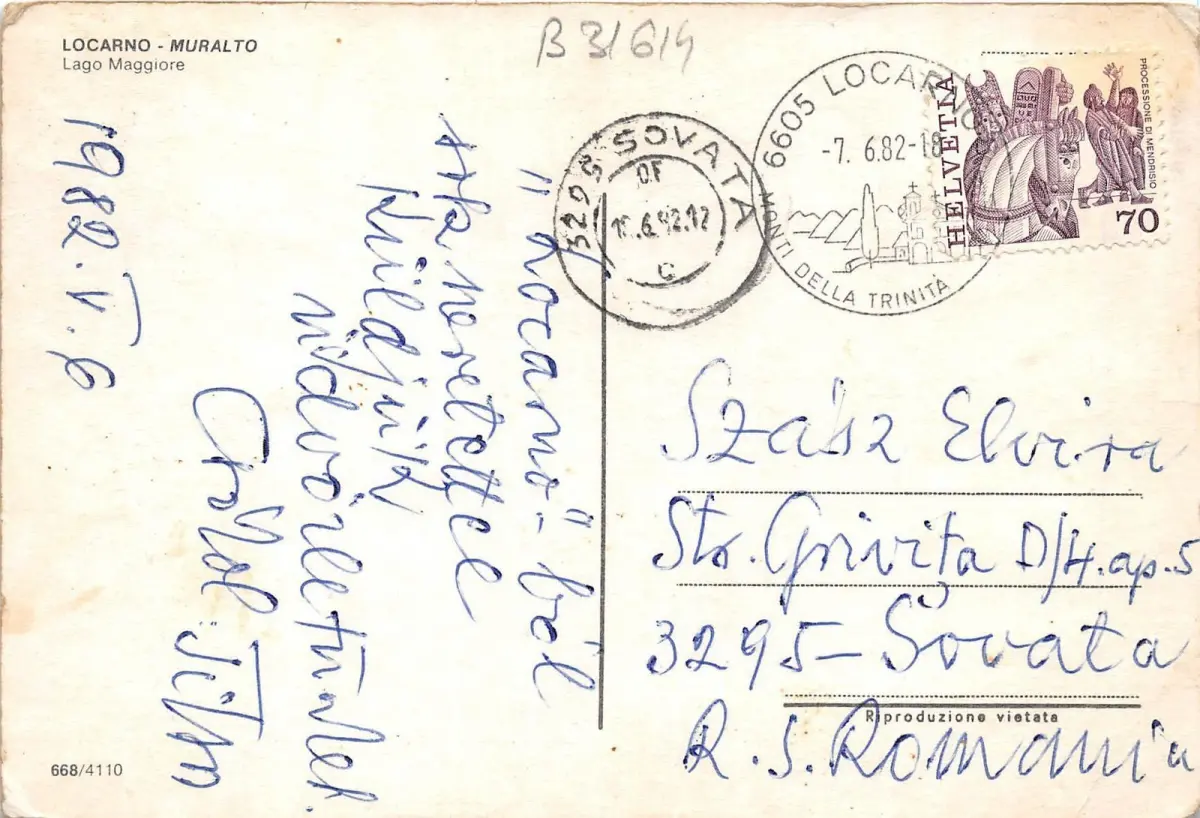 LOCARNO - MURALTO
Lago Maggiore
B 31614
6605 LOCARNO
-7. 6.82-18
MONTI DELLA TRINITÀ
HELVETIA
PROCESSIONE DI MENDRISIO
70
3295 SOVATA
OF
.6.82.12
C
"Locarno"-ból
szeretettel
küldjük
üdvözletünket.
1982. V. 6
Szász Elvira
Str. Grivița D/4. ap. 5
3295 - Sovata
R. S. Romania
Riproduzione vietata
668/4110